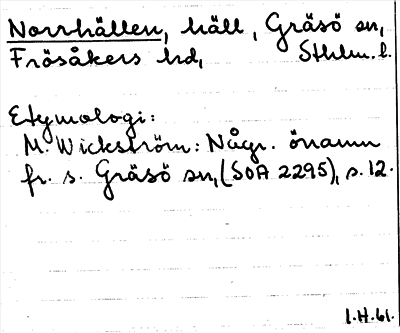 Norrhällen, häll, Gräsö sn,
Frösåkers hd, Sthlm. l.
Etymologi:
M. Wickström: Någr. önamn
fr. s. Gräsö sn, (SOA 2295), s. 12.
I.H.61.